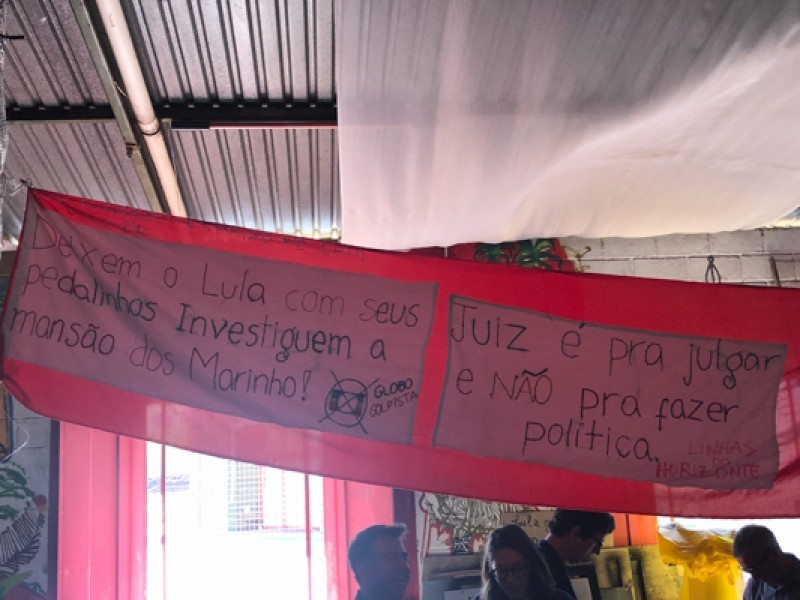 Deixem o Lula com seus
pedalinhos Investiguem a
mansão dos Marinho!
GLOBO
GOLPISTA
Juiz é pra julgar
e NÃO pra fazer
política.
LINHAS
DO
HORIZONTE